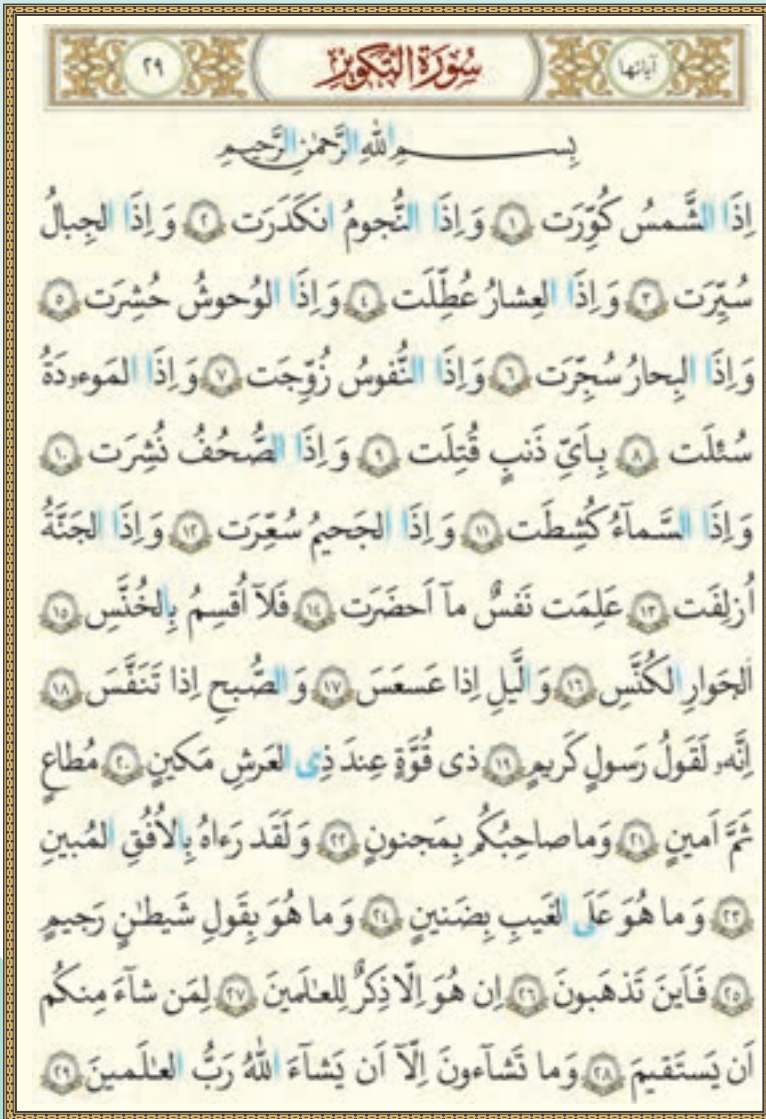 آیاتها سُورَةُ التَّكوير ٢٩
بِسمِ اللّٰهِ الرَّحمٰنِ الرَّحيمِ
اِذَا الشَّمسُ كُوِّرَت ١ وَ اِذَا النُّجومُ انكَدَرَت ٢ وَ اِذَا الجِبالُ
سُيِّرَت ٣ وَ اِذَا العِشارُ عُطِّلَت ٤ وَ اِذَا الوُحوشُ حُشِرَت ٥
وَ اِذَا البِحارُ سُجِّرَت ٦ وَ اِذَا النُّفوسُ زُوِّجَت ٧ وَ اِذَا المَوءودَةُ
سُئِلَت ٨ بِاَيِّ ذَنبٍ قُتِلَت ٩ وَ اِذَا الصُّحُفُ نُشِرَت ١٠
وَ اِذَا السَّمآءُ كُشِطَت ١١ وَ اِذَا الجَحيمُ سُعِّرَت ١٢ وَ اِذَا الجَنَّةُ
اُزلِفَت ١٣ عَلِمَت نَفسٌ مآ اَحضَرَت ١٤ فَلآ اُقسِمُ بِالخُنَّسِ ١٥
اَلجَوارِ الكُنَّسِ ١٦ وَ الَّيلِ اِذا عَسعَسَ ١٧ وَ الصُّبحِ اِذا تَنَفَّسَ ١٨
اِنَّهُۥ لَقَولُ رَسولٍ كَريمٍ ١٩ ذى قُوَّةٍ عِندَ ذِى العَرشِ مَكينٍ ٢٠ مُطاعٍ
ثَمَّ اَمينٍ ٢١ وَ ما صاحِبُكُم بِمَجنونٍ ٢٢ وَ لَقَد رَءاهُ بِالاُفُقِ المُبينِ
٢٣ وَ ما هُوَ عَلَى الغَيبِ بِضَنينٍ ٢٤ وَ ما هُوَ بِقَولِ شَيطٰنٍ رَجيمٍ
٢٥ فَاَينَ تَذهَبونَ ٢٦ اِن هُوَ اِلّا ذِكرٌ لِلعٰلَمينَ ٢٧ لِمَن شآءَ مِنكُم
اَن يَستَقيمَ ٢٨ وَ ما تَشآءونَ اِلّآ اَن يَشآءَ اللّٰهُ رَبُّ العٰلَمينَ ٢٩